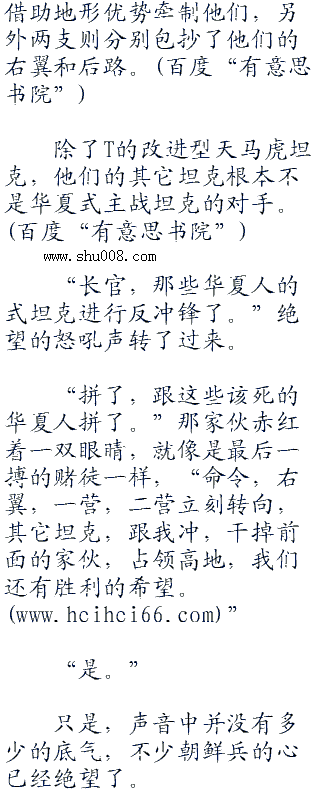 借助地形优势牵制他们，另
外两支则分别包抄了他们的
右翼和后路。(百度“有意思
书院”)
除了T的改进型天马虎坦
克，他们的其它坦克根本不
是华夏式主战坦克的对手。
(百度“有意思书院”)
www.shu008.com
“长官，那些华夏人的
式坦克进行反冲锋了。”绝
望的怒吼声转了过来。
“拼了，跟这些该死的
华夏人拼了。”那家伙赤红
着一双眼睛，就像是最后一
搏的赌徒一样，“命令，右
翼，一营，二营立刻转向，
其它坦克，跟我冲，干掉前
面的家伙，占领高地，我们
还有胜利的希望。
(www.hcihci66.com)”
“是。”
只是，声音中并没有多
少的底气，不少朝鲜兵的心
已经绝望了。